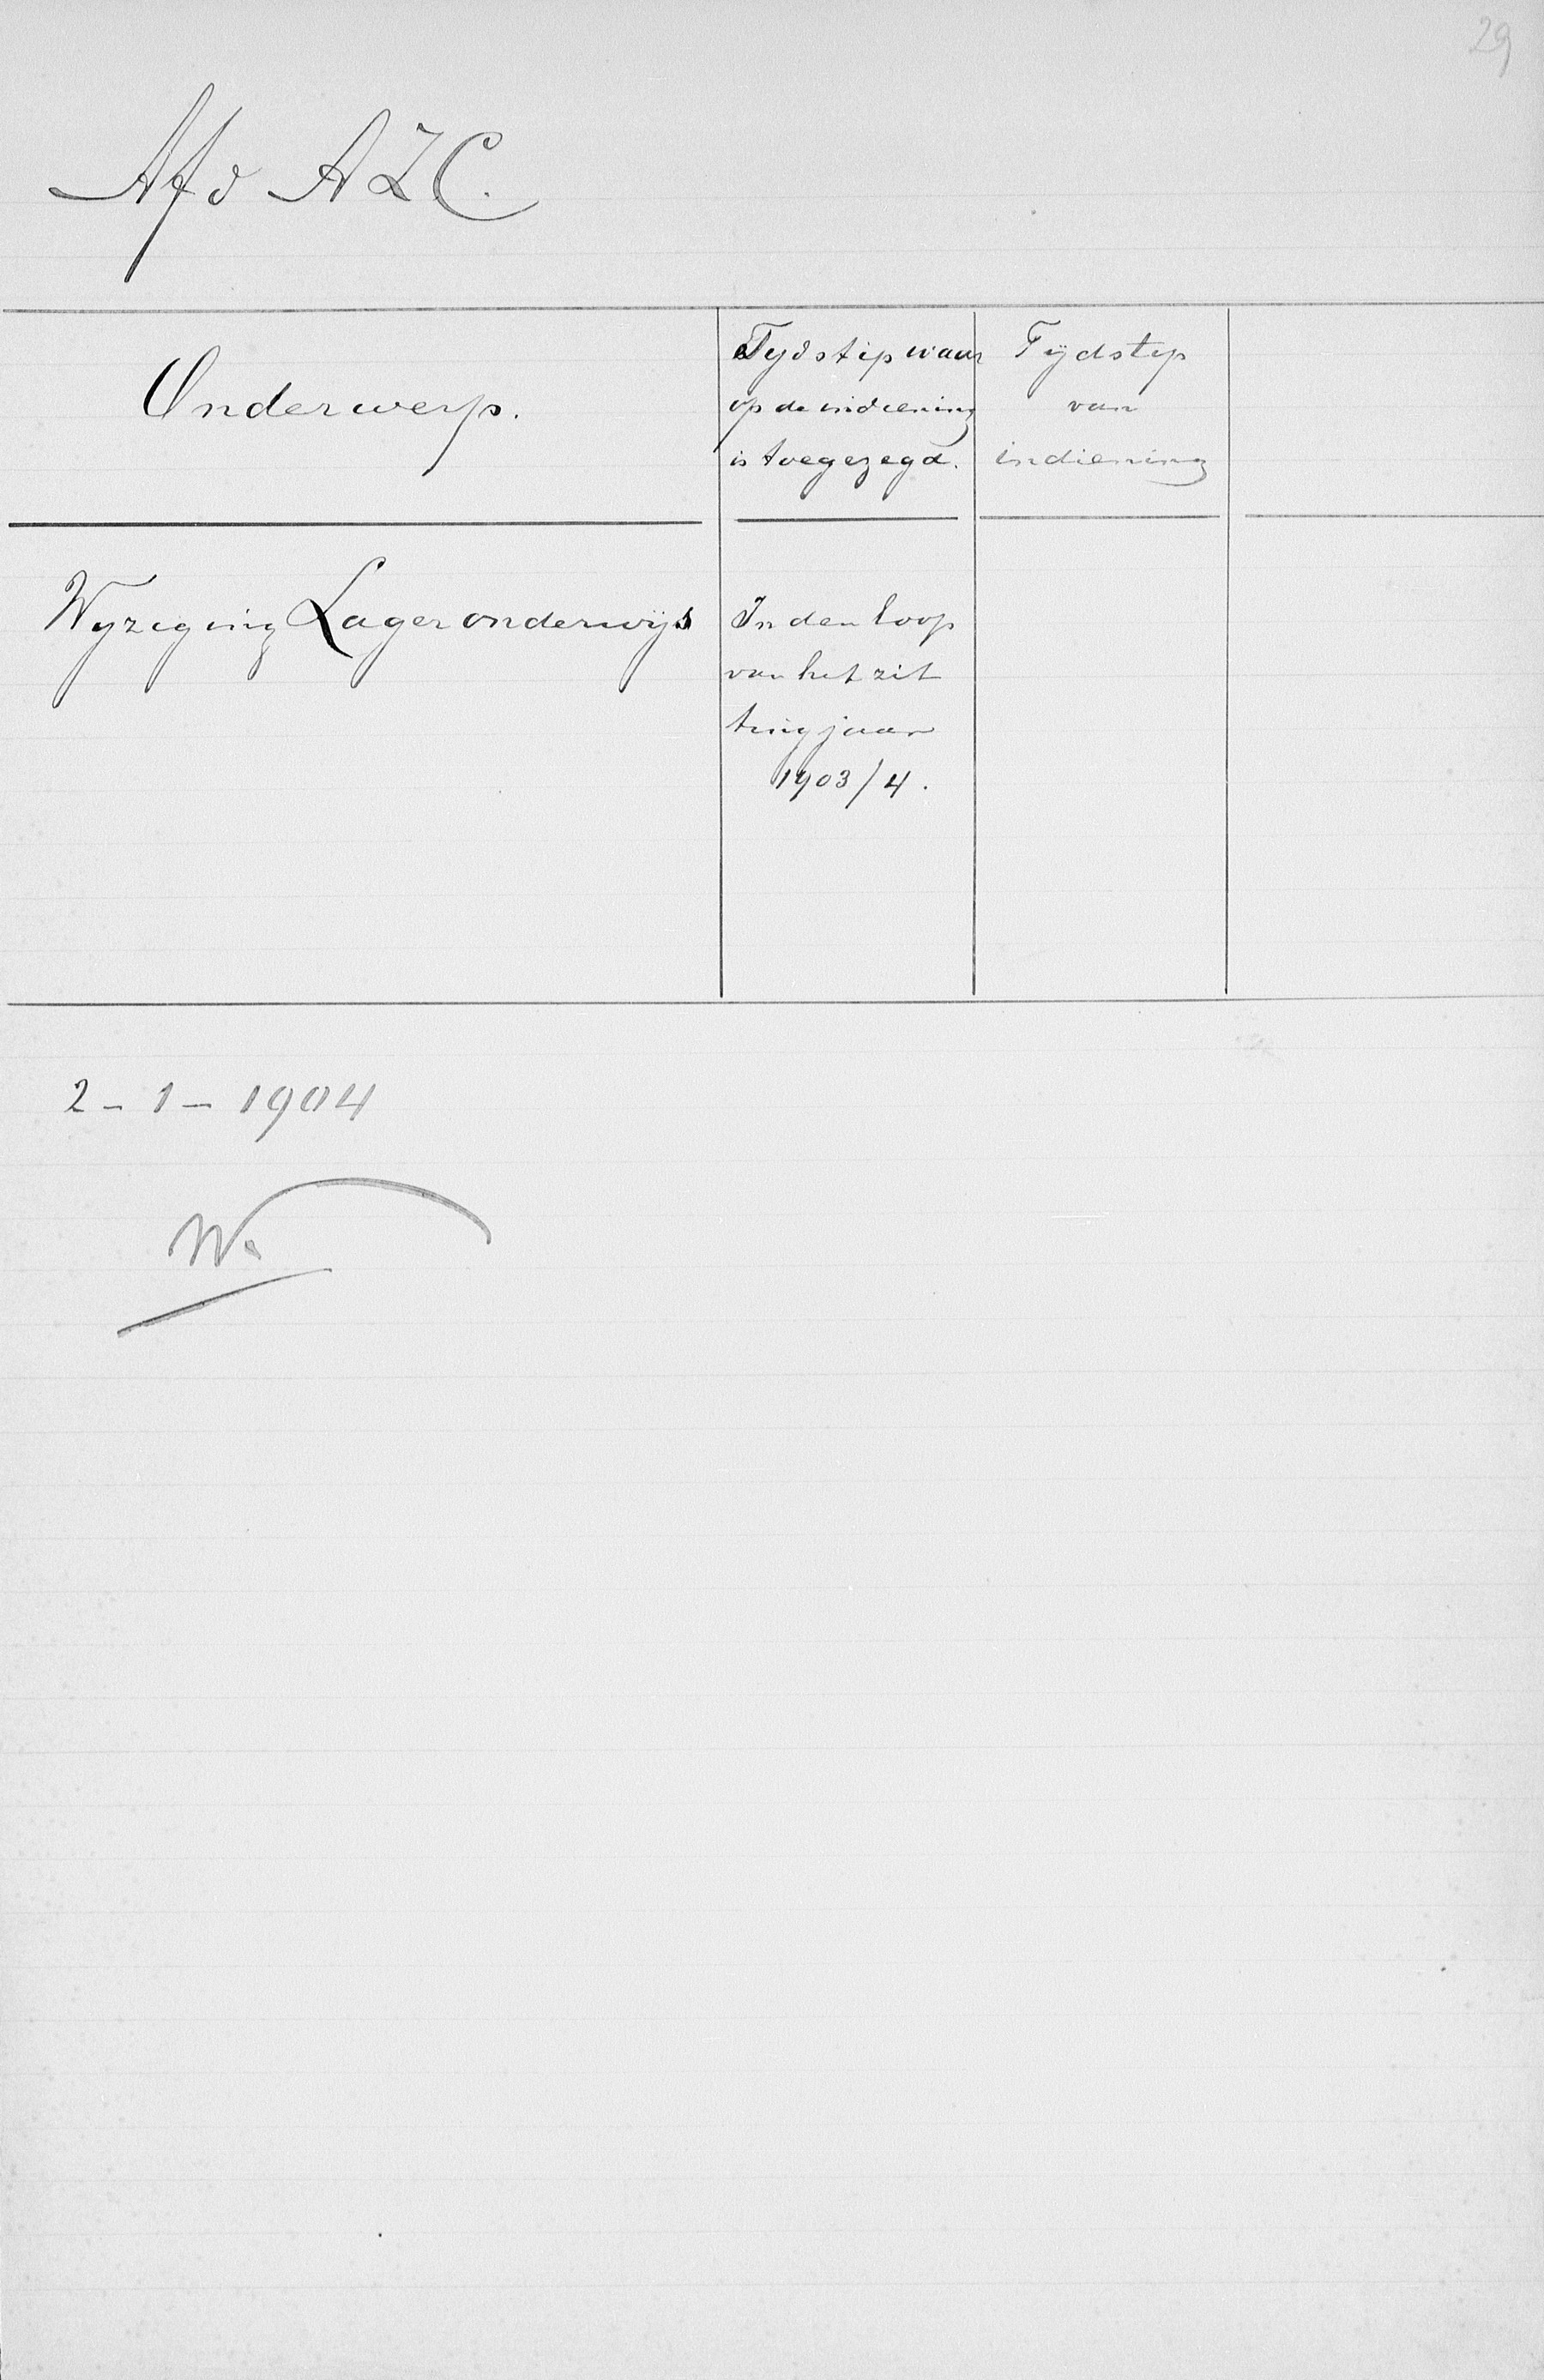 29
Afd AZC.
Onderwerp.
Tydstip waar
op de indiening
is toegezegd.
Tydstip
van
indiening
Wyziging Lager onderwijs
In den loop
van het zit
ting jaar
1903/4.
2-1-1904